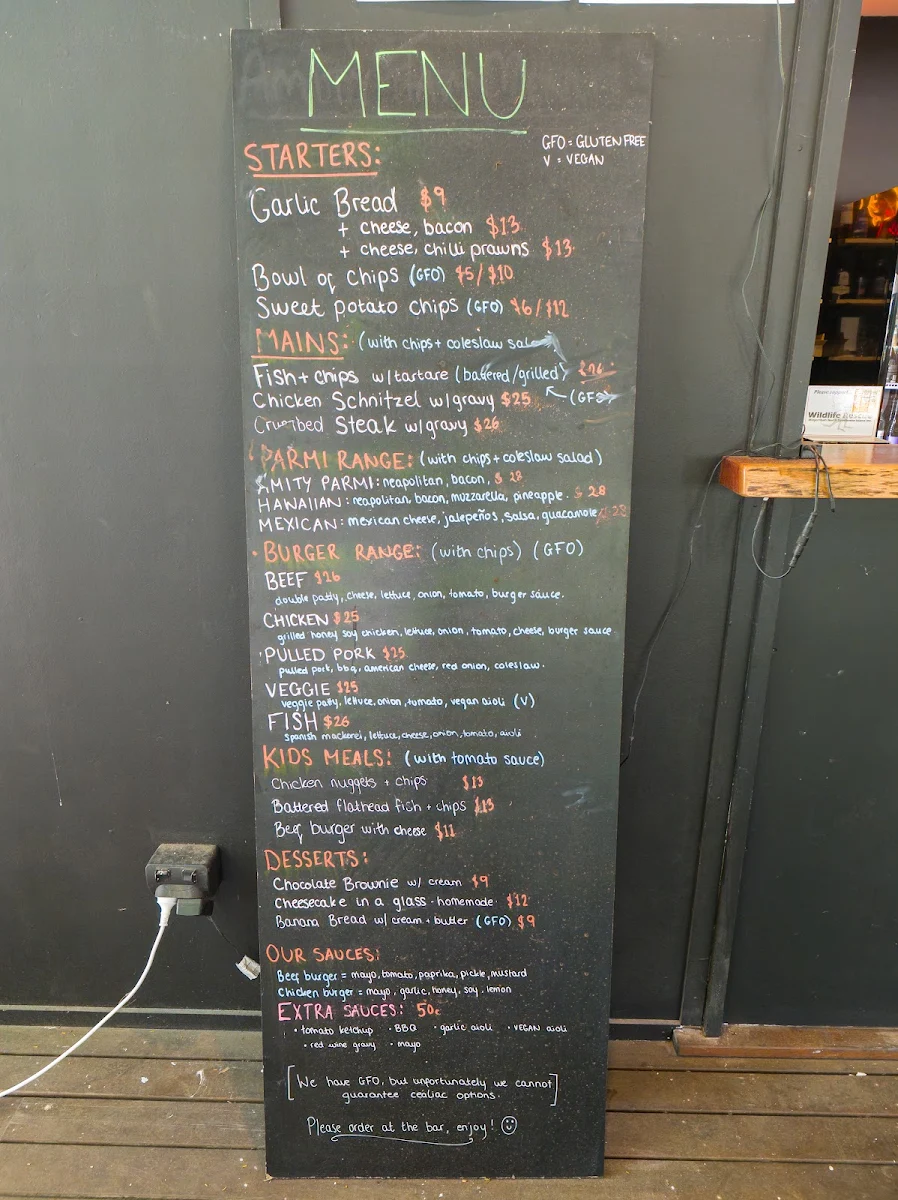 MENU
GFO = GLUTEN FREE
V = VEGAN
STARTERS:
Garlic Bread $9
+ cheese, bacon $13
+ cheese, chilli prawns $13
Bowl of chips (GFO) $5/$10
Sweet potato chips (GFO) $6/$12
MAINS: (with chips + coleslaw salad)
Fish + chips w/tartare (battered/grilled) $26
Chicken Schnitzel w/gravy $25 (GFO)
Crumbed Steak w/gravy $26
PARMI RANGE: (with chips + coleslaw salad)
AMITY PARMI: neapolitan, bacon, $28
HAWAIIAN: neapolitan, bacon, muzzarella, pineapple. $28
MEXICAN: mexican cheese, jalepeños, salsa, guacamole $28
• BURGER RANGE: (with chips) (GFO)
BEEF $26
double patty, cheese, lettuce, onion, tomato, burger sauce.
CHICKEN $25
grilled honey soy chicken, lettuce, onion, tomato, cheese, burger sauce
PULLED PORK $25
pulled pork, bbq, american cheese, red onion, coleslaw.
VEGGIE $25
veggie patty, lettuce, onion, tomato, vegan aioli (V)
FISH $26
Spanish mackerel, lettuce, cheese, onion, tomato, aioli
KIDS MEALS: (with tomato sauce)
Chicken nuggets + chips $13
Battered flathead fish + chips $13
Beef burger with cheese $11
DESSERTS:
Chocolate Brownie w/ cream $9
Cheesecake in a glass - homemade $12
Banana Bread w/ cream + butter (GFO) $9
OUR SAUCES:
Beef burger = mayo, tomato, paprika, pickle, mustard
Chicken burger = mayo, garlic, honey, soy, lemon
EXTRA SAUCES: 50c
• tomato ketchup • BBQ • garlic aioli • VEGAN aioli
• red wine gravy • mayo
[We have GFO, but unportunately we cannot
guarantee cealiac options.]
Please order at the bar, enjoy! ☺
Wildlife Rescue